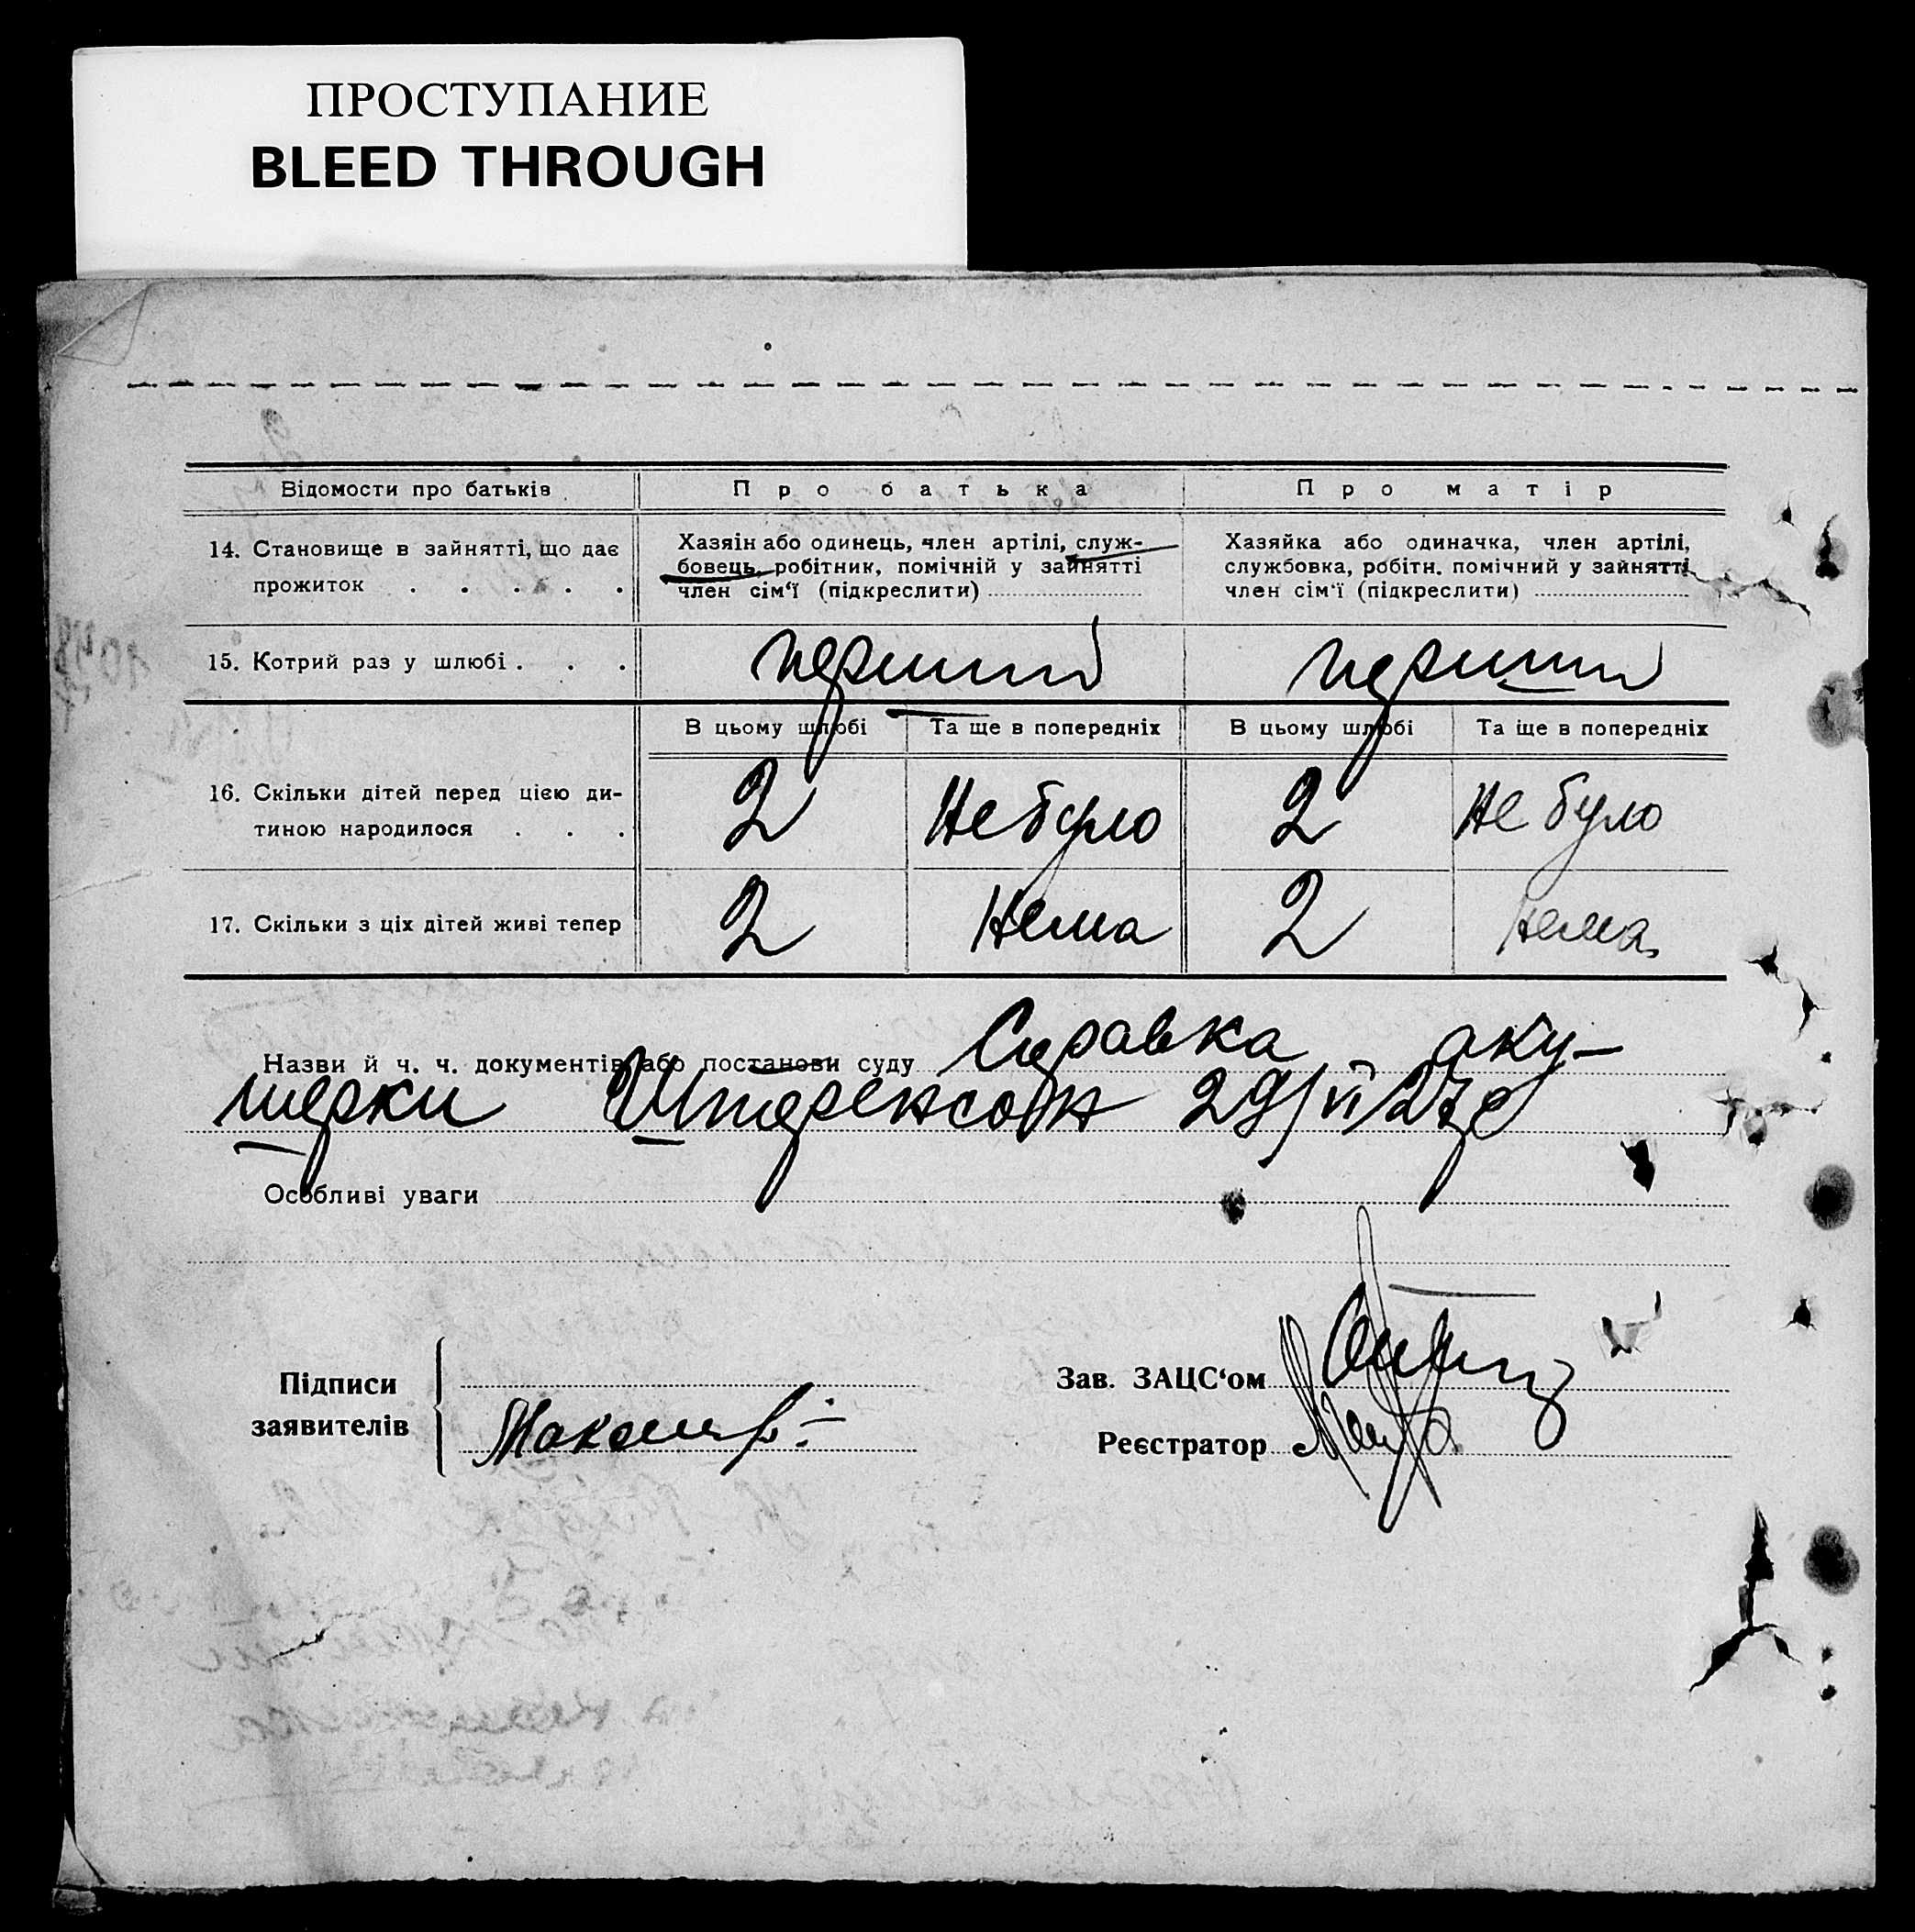 ПРОСТУПАНИЕ
BLEED THROUGH
Відомости про батьків
Про батька
Про матір
14. Становище в зайнятті, що дає
прожиток . . . . .
Хазяін або одинець, член артілі, служ-
бовець, робітник, помічній у зайнятті
член сім'ї (підкреслити)
Хазяйка або одиначка, член артілі,
службовка, робітн. помічний у зайнятті
член сім'ї (підкреслити)
15. Котрий раз у шлюбі . . .
перший
перший
В цьому шлюбі
Та ще в попередніх
В цьому шлюбі
Та іще в попередніх
16. Скільки дітей перед цією ди-
тиною народилося . . .
2
Не було
2
Не було
17. Скільки з ціх дітей живі тепер
2
Нема
2
Нема
Назви й ч. ч. документів або постанови суду Справка аку-
шерки Штеренсон 29/VI 27 р
Особливі уваги
Підписи
заявителів
Зав. ЗАЦС'ом
Реєстратор